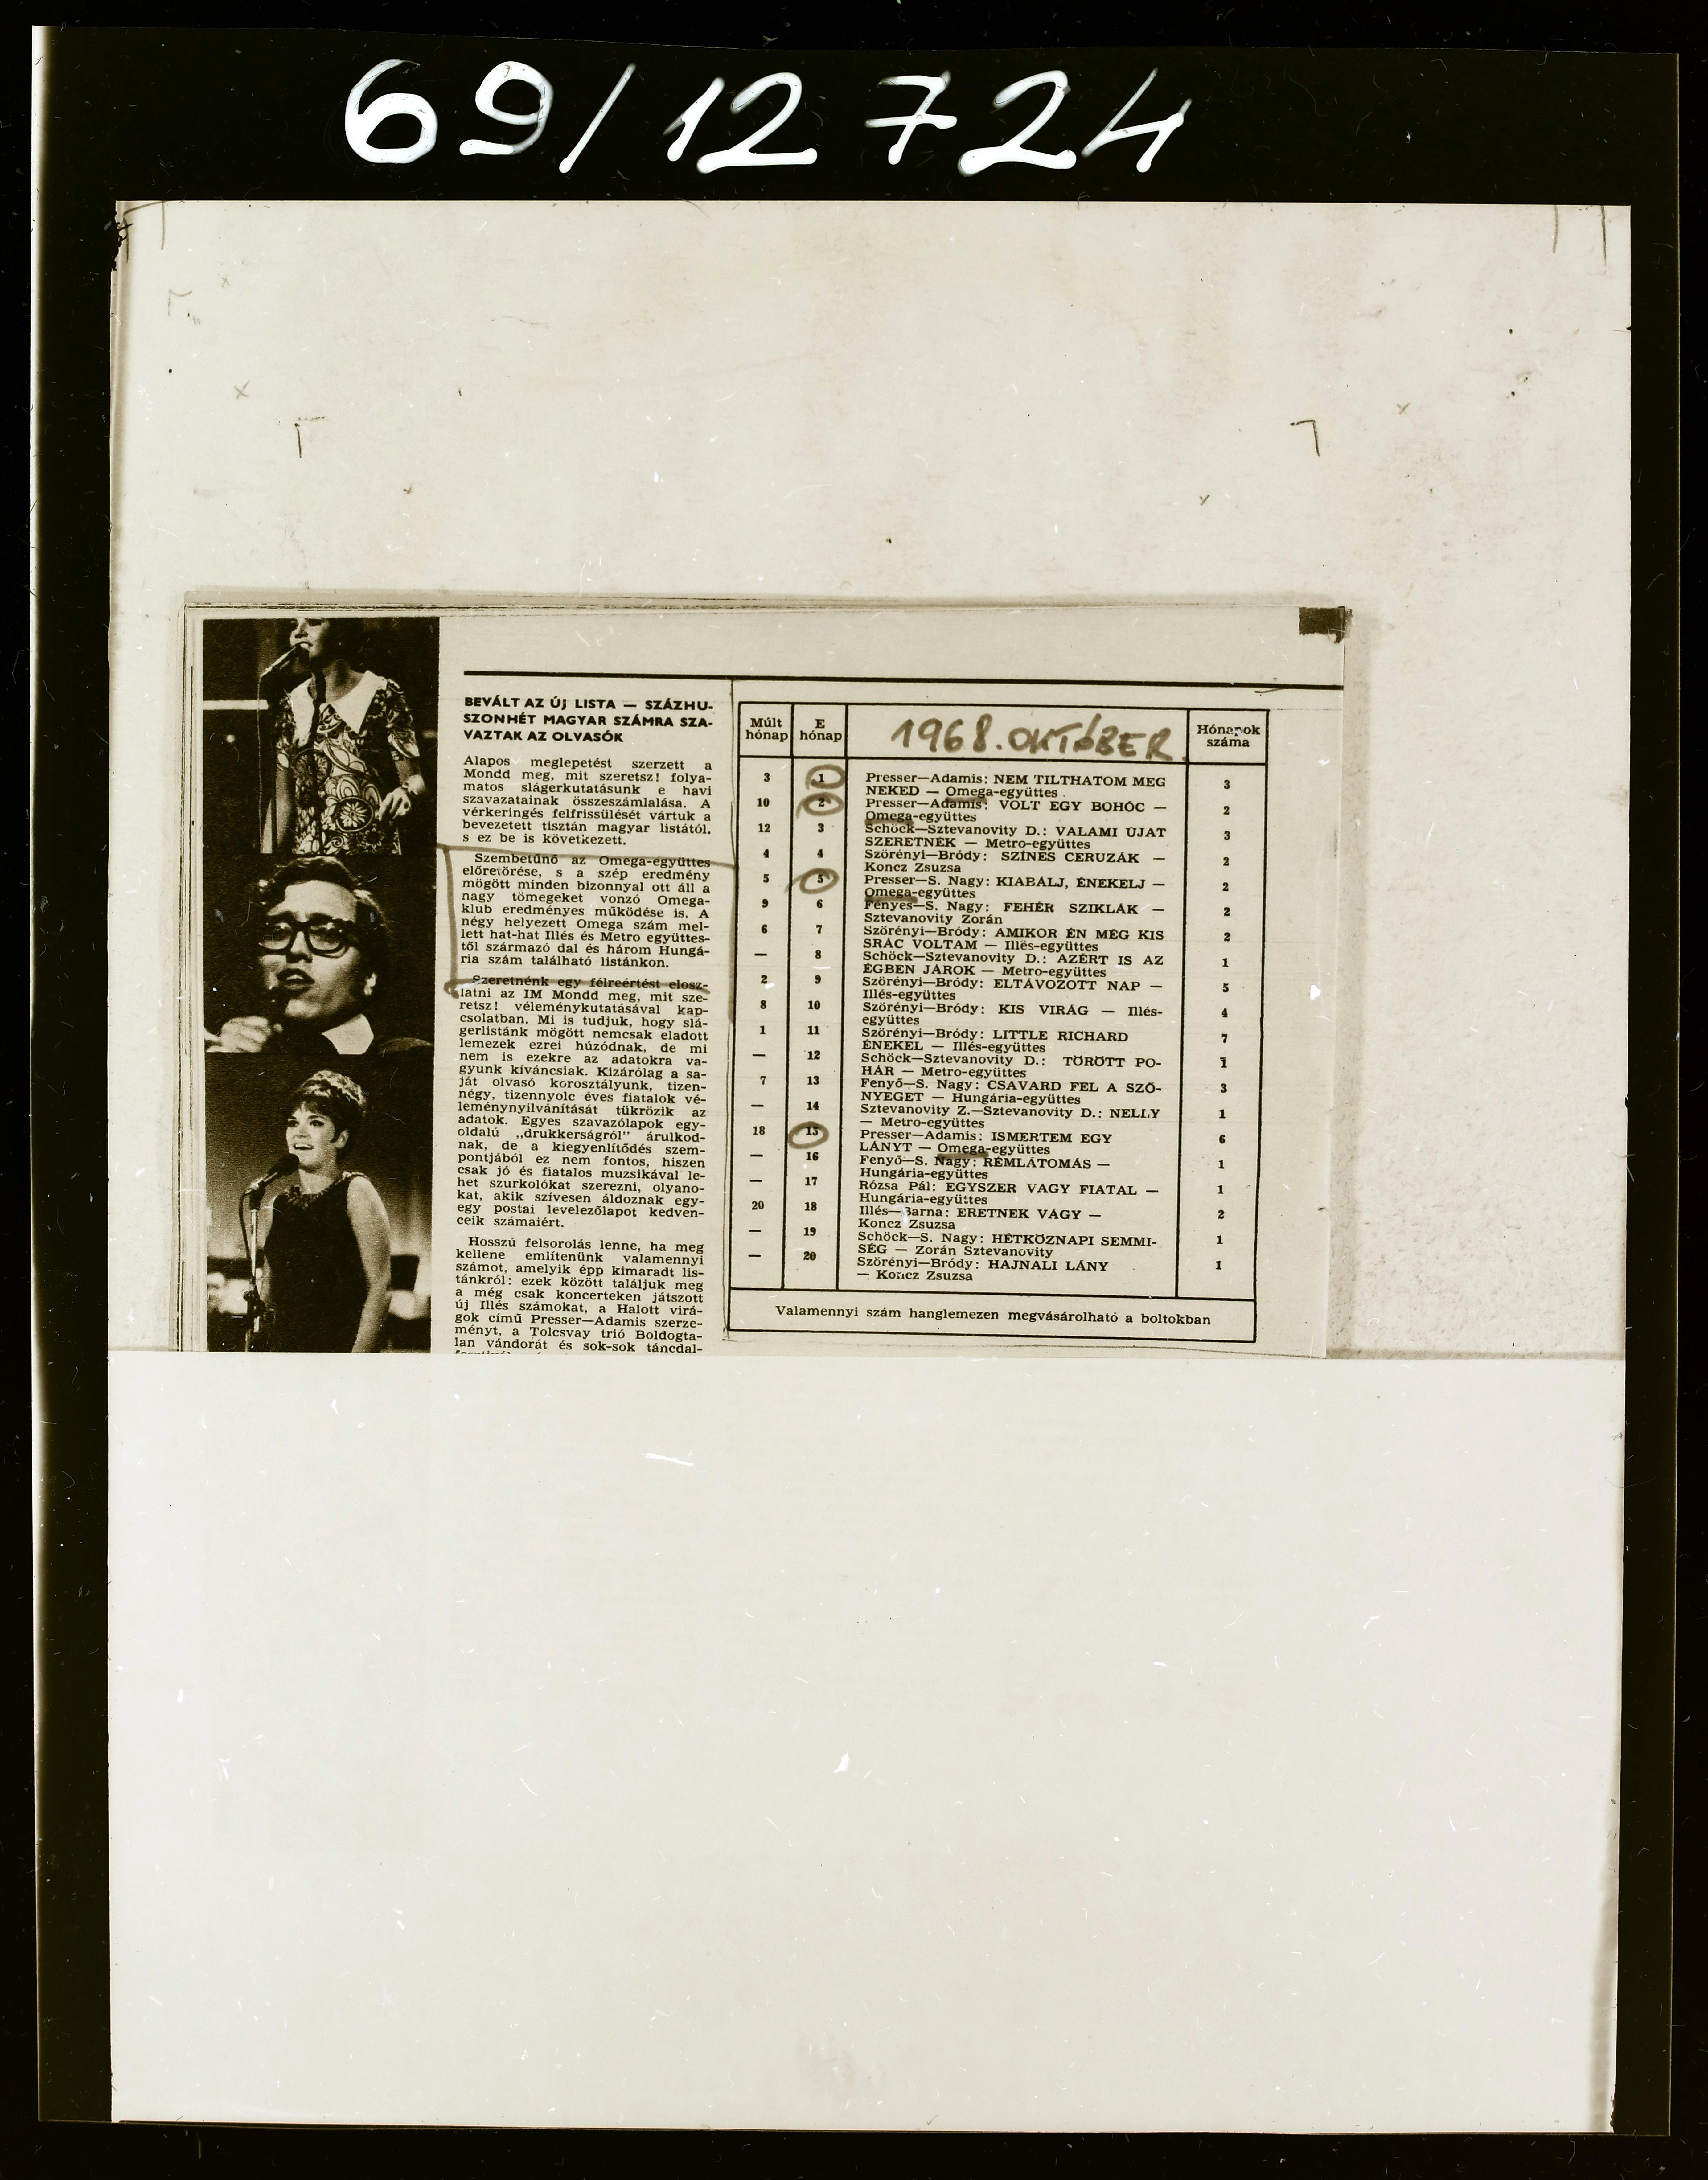 69/12724
BEVÁLT AZ ÚJ LISTA — SZÁZHU-
SZONHÉT MAGYAR SZÁMRA SZA-
VAZTAK AZ OLVASÓK
Alapos meglepetést szerzett a
Mondd meg, mit szeretsz! folya-
matos slágerkutatásunk e havi
szavazatainak összeszámlálása. A
vérkeringés felfrissülését vártuk a
bevezetett tisztán magyar listától,
s ez be is következett.
Szembetűnő az Omega-együttes
előretörése, s a szép eredmény
mögött minden bizonnyal ott áll a
nagy tömegeket vonzó Omega-
klub eredményes működése is. A
négy helyezett Omega szám mel-
lett hat-hat Illés és Metro együttes-
től származó dal és három Hungá-
ria szám található listánkon.
Szeretnénk egy félreértést elosz-
latni az IM Mondd meg, mit sze-
retsz! véleménykutatásával kap-
csolatban. Mi is tudjuk, hogy slá-
gerlistánk mögött nemcsak eladott
lemezek ezrei húzódnak, de mi
nem is ezekre az adatokra va-
gyunk kíváncsiak. Kizárólag a sa-
ját olvasó korosztályunk, tizen-
négy, tizennyolc éves fiatalok vé-
leménynyilvánítását tükrözik az
adatok. Egyes szavazólapok egy-
oldalú „drukkerságról" árulkod-
nak, de a kiegyenlítődés szem-
pontjából ez nem fontos, hiszen
csak jó és fiatalos muzsikával le-
het szurkolókat szerezni, olyano-
kat, akik szívesen áldoznak egy-
egy postai levelezőlapot kedven-
ceik számaiért.
Hosszú felsorolás lenne, ha meg
kellene említenünk valamennyi
számot, amelyik épp kimaradt lis-
tánkról: ezek között találjuk meg
a még csak koncerteken játszott
új Illés számokat, a Halott virá-
gok című Presser—Adamis szerze-
ményt, a Tolcsvay trió Boldogta-
lan vándorát és sok-sok táncdal-
Múlt hónap E hónap 1968. OKTÓBER. Hónapok száma
3 1 Presser—Adamis: NEM TILTHATOM MEG 3
NEKED — Omega-együttes
10 2 Presser—Adamis: VOLT EGY BOHÓC — 2
Omega-együttes
12 3 Schöck—Sztevanovity D.: VALAMI ÚJAT 3
SZERETNÉK — Metro-együttes
4 4 Szörényi—Bródy: SZÍNES CERUZÁK — 2
Koncz Zsuzsa
5 5 Presser—S. Nagy: KIABÁLJ, ÉNEKELJ — 2
Omega-együttes
9 6 Fényes—S. Nagy: FEHÉR SZIKLÁK — 2
Sztevanovity Zorán
6 7 Szörényi—Bródy: AMIKOR ÉN MÉG KIS 2
SRÁC VOLTAM — Illés-együttes
— 8 Schöck—Sztevanovity D.: AZÉRT IS AZ 1
ÉGBEN JÁROK — Metro-együttes
2 9 Szörényi—Bródy: ELTÁVOZOTT NAP — 5
Illés-együttes
8 10 Szörényi—Bródy: KIS VIRÁG — Illés- 4
együttes
1 11 Szörényi—Bródy: LITTLE RICHARD 7
ÉNEKEL — Illés-együttes
— 12 Schöck—Sztevanovity D.: TÖRÖTT PO- 1
HÁR — Metro-együttes
7 13 Fenyő—S. Nagy: CSAVARD FEL A SZŐ- 3
NYEGET — Hungária-együttes
— 14 Sztevanovity Z.—Sztevanovity D.: NELLY 1
— Metro-együttes
18 15 Presser—Adamis: ISMERTEM EGY 6
LÁNYT — Omega-együttes
— 16 Fenyő—S. Nagy: RÉMLÁTOMÁS — 1
Hungária-együttes
— 17 Rózsa Pál: EGYSZER VAGY FIATAL — 1
Hungária-együttes
20 18 Illés—Barna: ERETNEK VÁGY — 2
Koncz Zsuzsa
— 19 Schöck—S. Nagy: HÉTKÖZNAPI SEMMI- 1
SÉG — Zorán Sztevanovity
— 20 Szörényi—Bródy: HAJNALI LÁNY 1
— Koncz Zsuzsa
Valamennyi szám hanglemezen megvásárolható a boltokban